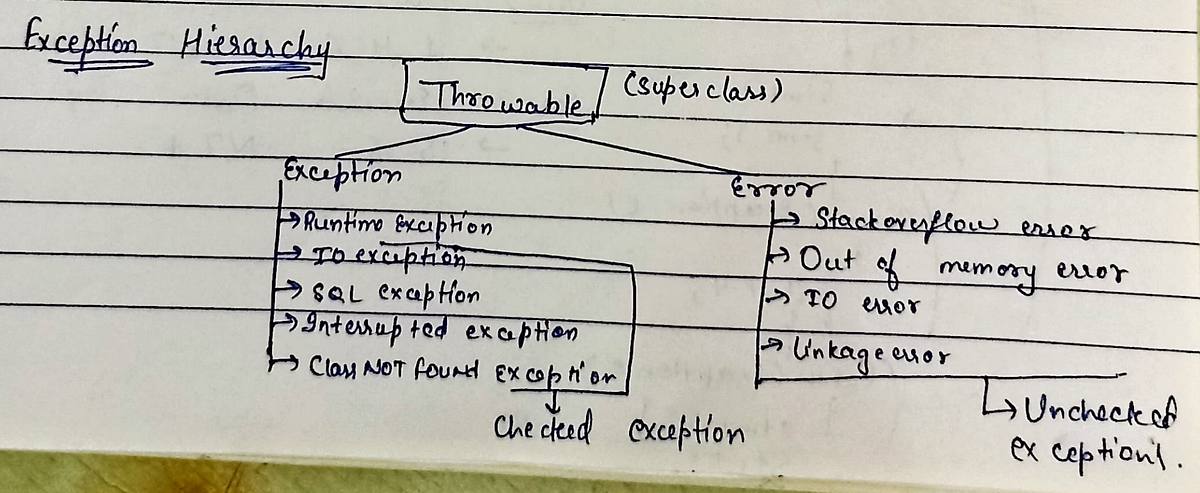 Exception Hierarchy
Throwable (superclass)
Exception
→ Runtime Exception
→ IO exception
→ SQL exception
→ Interrupted exception
→ Class NOT found Exception
Checked exception
Error
→ Stackoverflow error
→ Out of memory error
→ IO error
→ Linkage error
→ Unchecked
exception's.